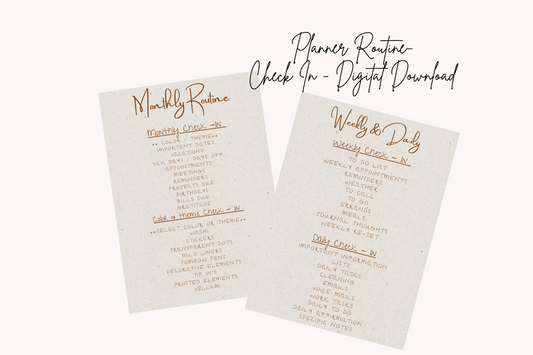 Planner Routine-
Check In - Digital Download
Monthly Routine
Monthly Check -IN
** COLOR / THEME**
IMPORTANT DATES
VACATIONS
SICK DAYS / DAYS OFF
APPOINTMENTS
MEETINGS
REMINDERS
PROJECTS DUE
BIRTHDAYS
BILLS DUE
GRATITUDE
Color & Theme Check - IN
**SELECT COLOR OR THEME**
WASHI
STICKERS
TRANSPARENT DOTS
MILD LINERS
TOMBOW PENS
DECORATIVE ELEMENTS
TIP IN'S
PRINTED ELEMENTS
VELLUM
Weekly & Daily
Weekly Check - IN
TO DO LIST
WEEKLY APPOINTMENTS
REMINDERS
WEATHER
TO CALL
TO GO
ERRANDS
MEALS
JOURNAL THOUGHTS
WEEKLY RE-SET
Daily Check - IN
IMPORTANT INFORMATION
LISTS
DAILY TASKS
CLEANING
EMAILS
VOICE MAILS
WORK TASKS
DAILY TO DO
DAILY AFFIRMATION
SPEZIFIC NOTES